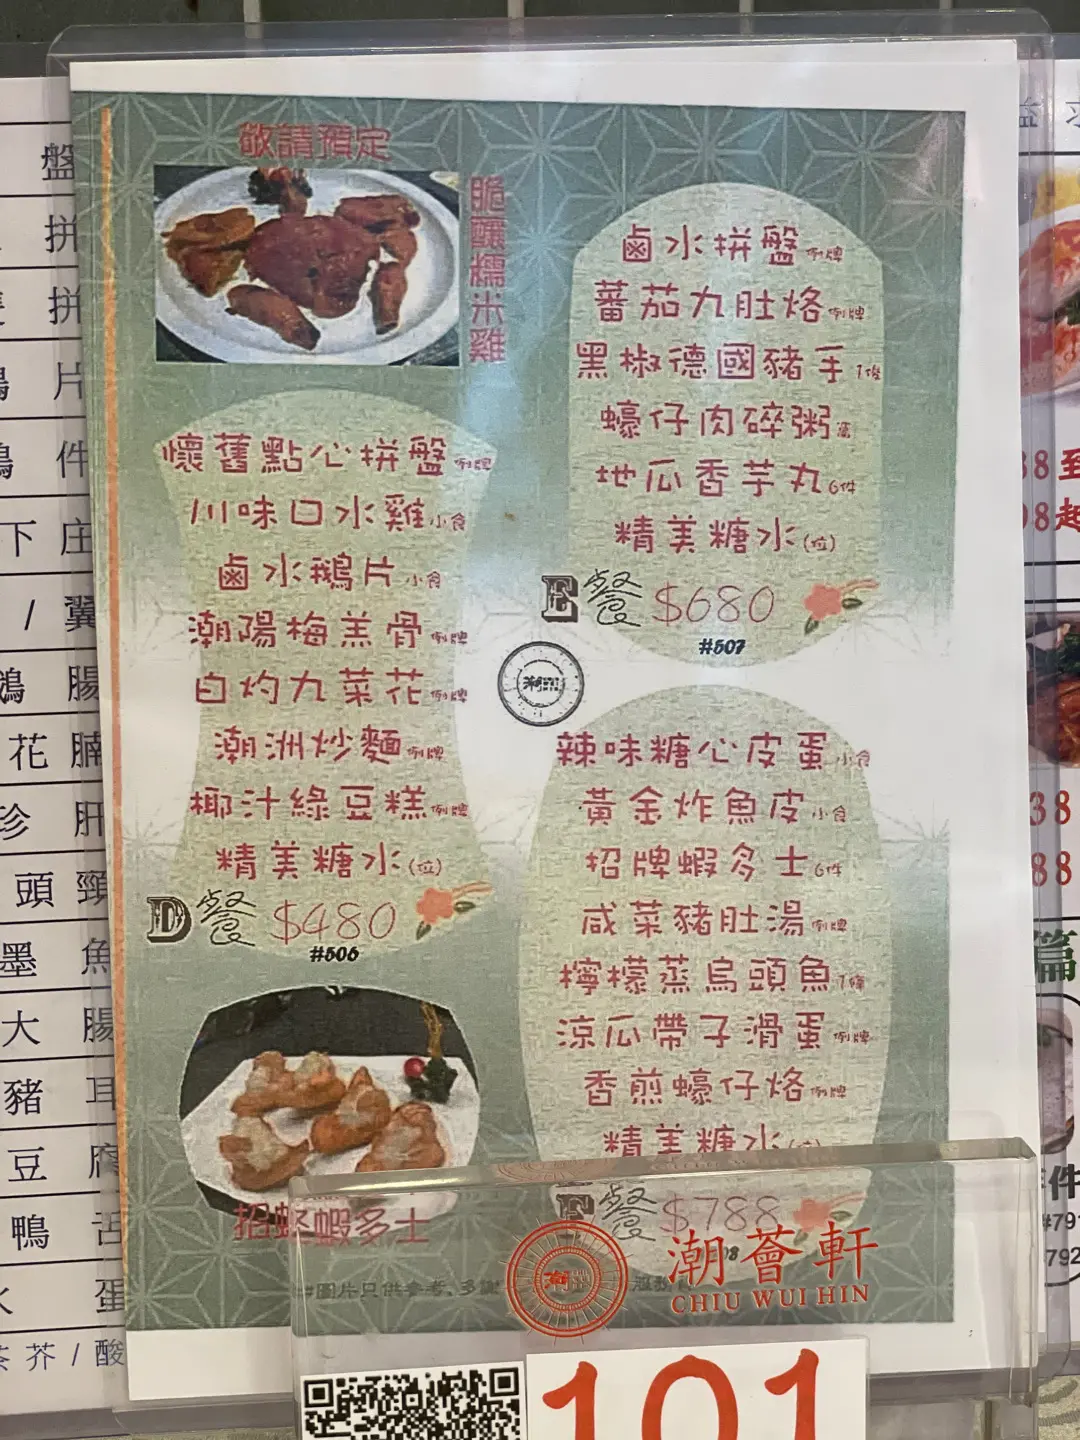 敬請預定
脆釀糯米雞
懷舊點心拼盤 例牌
川味口水雞 小食
鹵水鵝片 小食
潮陽梅羔骨 例牌
白灼九菜花 例牌
潮洲炒麵 例牌
椰汁綠豆糕 例牌
精美糖水 (位)
D餐 $480
#506
鹵水拼盤 例牌
蕃茄九肚烙 例牌
黑椒德國豬手 1隻
蠔仔肉碎粥
地瓜香芋丸 6件
精美糖水 (位)
E餐 $680
#507
辣味糖心皮蛋 小食
黃金炸魚皮 小食
招牌蝦多士 6件
咸菜豬肚湯 例牌
檸檬蒸烏頭魚 1條
涼瓜帶子滑蛋 例牌
香煎蠔仔烙 例牌
精美糖水
F餐 $788
招牌蝦多士
#圖片只供參考，多謝
潮薈軒
CHIU WUI HIN
101
盤
拼
拼
片
件
下庄
/ 翼
腸
花腩
珍肝
頭頸
墨魚
大腸
豬耳
豆腐
鴨舌
蛋
芥 / 酸
88至
98起
38
88
篇
件